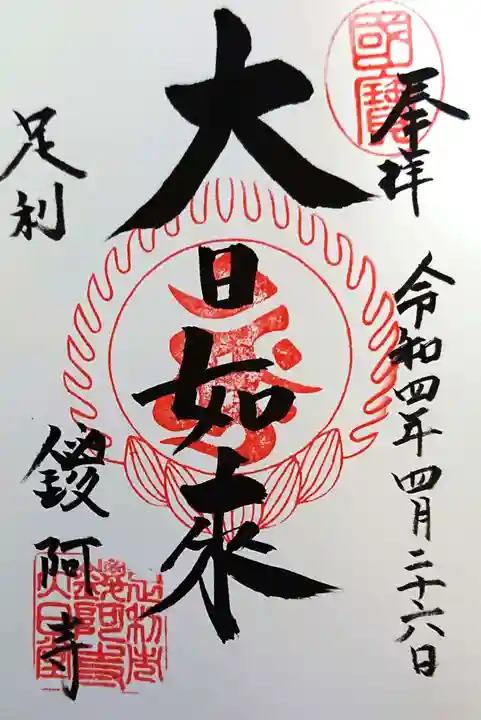 奉拝
令和四年四月二十六日
國寶
大日如来
足利
鑁阿寺